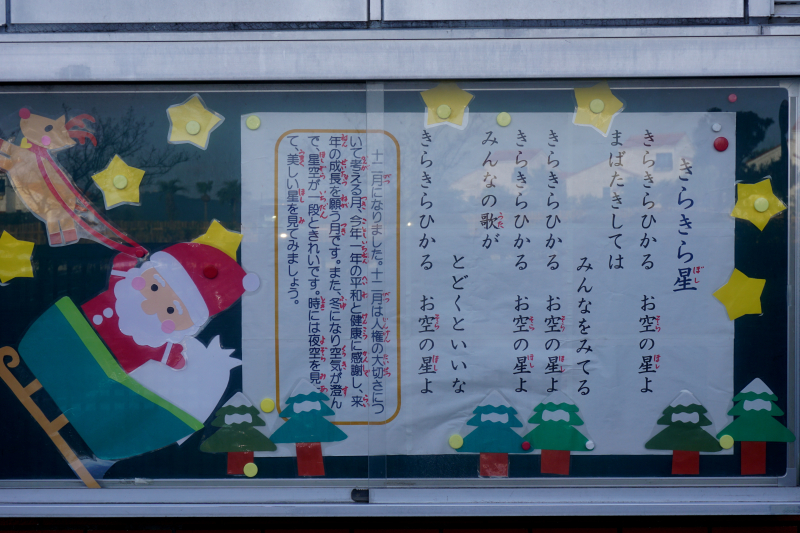 きらきら星
きらきらひかる お空の星よ
まばたきしては
みんなをみてる
きらきらひかる お空の星よ
きらきらひかる お空の星よ
みんなの歌が
とどくといいな
きらきらひかる お空の星よ
十二月になりました。十二月は人権の大切さにつ
いて考える月、今年一年の平和と健康に感謝し、来
年の成長を願う月です。また、冬になり空気が澄ん
で、星空が一段ときれいです。時には夜空を見
て、美しい星を見てみましょう。